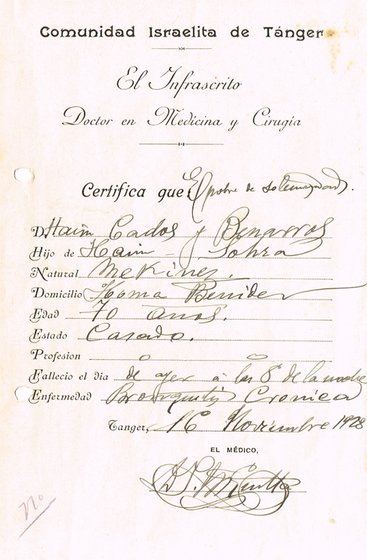 Comunidad Israelita de Tánger
El Infrascrito
Doctor en Medicina y Cirugía
Certifica que El pobre de solemnidad.
D. Haim Cados y Benarros
Hijo de Haim y Sohra
Natural Mekinez.
Domicilio Homa Benider
Edad 70 años.
Estado Casado.
Profesion
Falleció el dia de ayer a las 8 de la noche
Enfermedad Bronquitis Cronica
Tanger, 16 Noviembre 1928
EL MÉDICO,
Nº